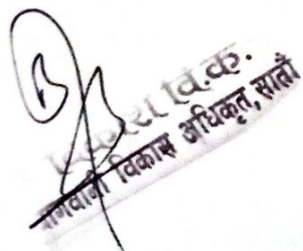 वि.क.
बागवानी विकास अधिकृत, सातौं